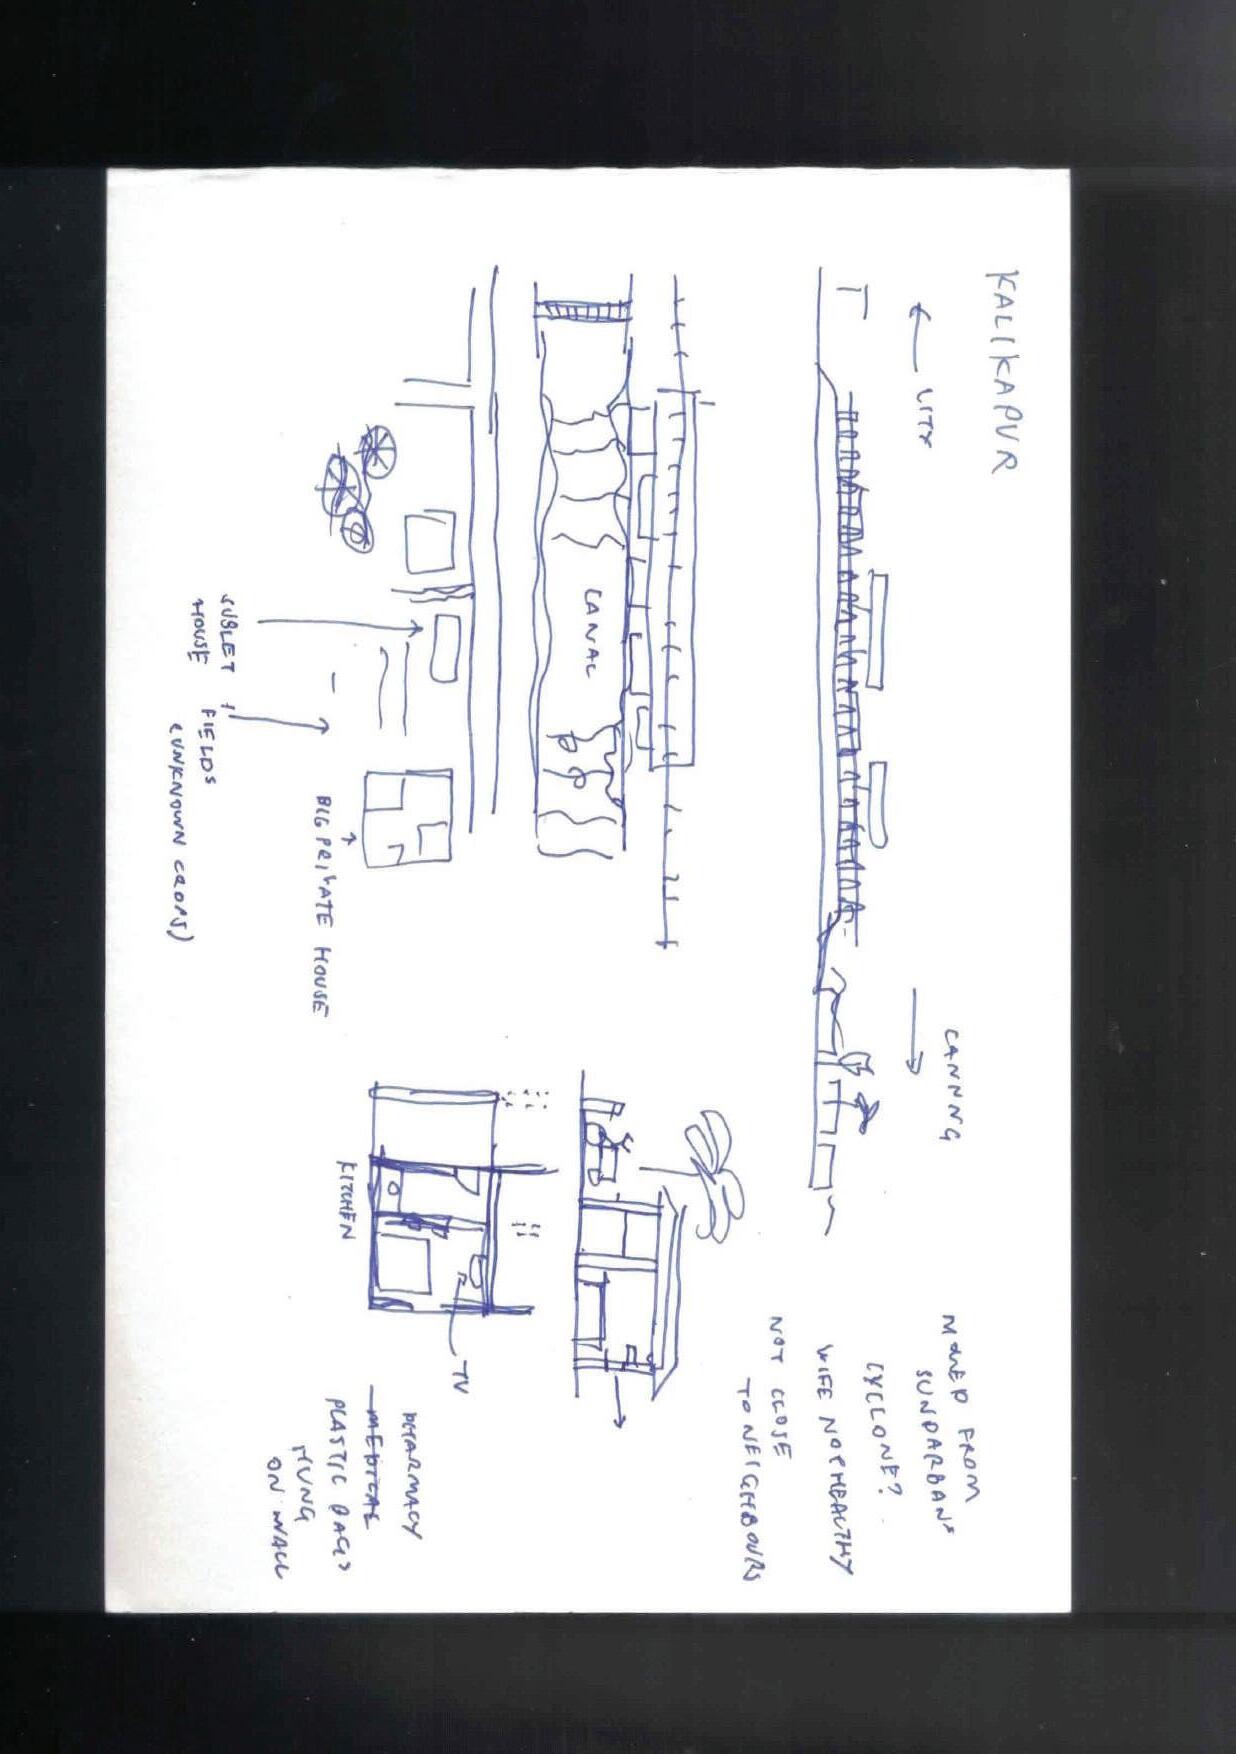 KALIKAPUR
← CITY
CANNNG
→
MOVED FROM
SUNDARBANS
CYCLONE?
WIFE NOT HEALTHY
NOT CLOSE
TO NEIGHBOURS
CANAL
TV
KITCHEN
PHARMACY
MEDICAL
PLASTIC BAGS
HUNG
ON WALL
BIG PRIVATE HOUSE
SUBLET
HOUSE
FIELDS
(UNKNOWN CROPS)